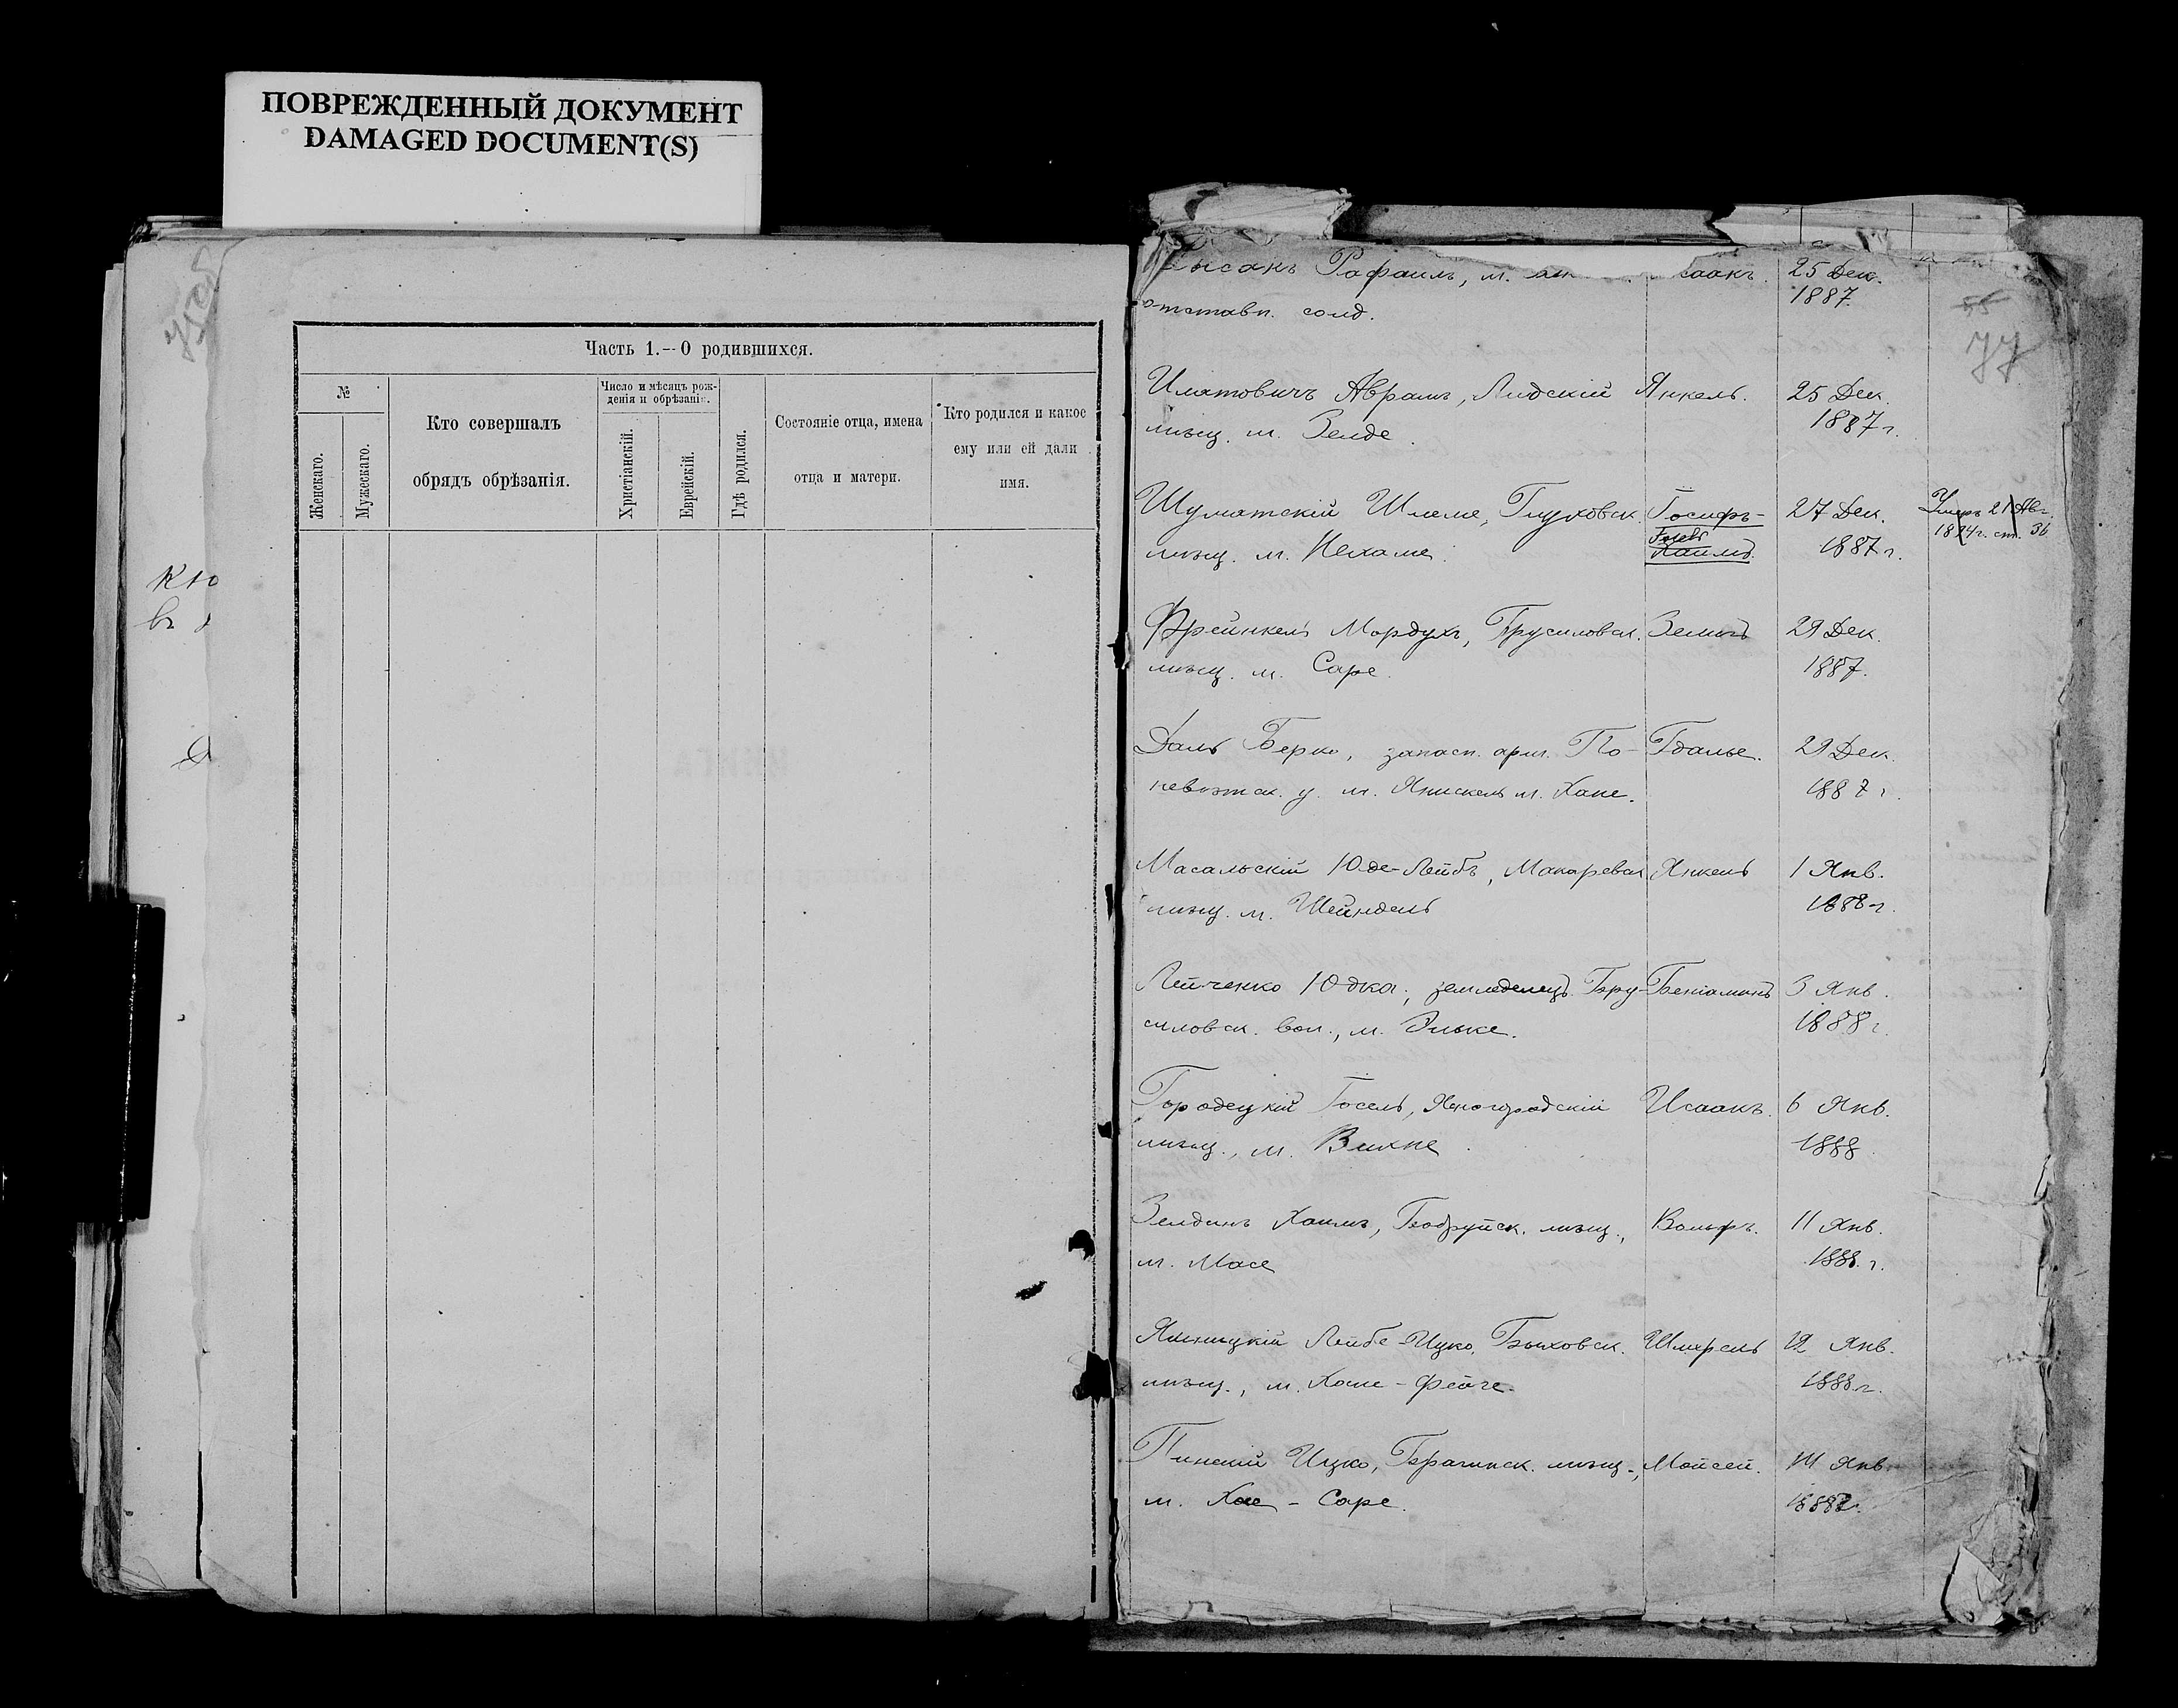 ПОВРЕЖДЕННЫЙ ДОКУМЕНТ
DAMAGED DOCUMENT(S)
Часть 1.—О родившихся.
№
Женскаго.
Мужескаго.
Кто совершалъ
обрядъ обрѣзанія.
Число и мѣсяцъ рож-
денія и обрѣзанія.
Христіанскій.
Еврейскій.
Гдѣ родился.
Состояніе отца, имена
отца и матери.
Кто родился и какое
ему или ей дали
имя.
Рафаилъ, м. саакъ. 25 Дек.
отставн. солд. 1887
55
Авраамъ, Лидскій Янкель. 25 Дек.
мѣщ. м. Зелде. 1887 г.
Шуматскій Шлеме, Глуховск. Іосифъ- 27 Дек. Умеръ 21 Авг.
мѣщ. м. Нехаме. Хаимъ. 1887 г. ст. 36
Френкель Мордухъ, Брусиловск. 29 Дек.
мѣщ. м. Саре. 1887.
Даль Берко, запасн. арм. По- Гдалье. 29 Дек.
невѣжск. у. м. м. Хане. 1887 г.
Масальскій Юде-Лейбъ, Макаревск Янкель 1 Янв.
мѣщ. м. Шейндель 1888 г.
Лейченко Юдка, земледелецъ Бру- Беніаминъ 3 Янв.
силовск. вол., м. Эльке. 1888 г.
Городецкій Іосель, Ясногородскій Исаакъ. 6 Янв.
мѣщ., м. Вихне. 1888
Зелдинъ Хаимъ, Бобруйск. мѣщ., Вольфъ. 11 Янв.
м. Масе 1888 г.
Лейбе-Ицко, Быховск. Шмерель 12 Янв.
мѣщ., м. Хане-Фейге. 1888 г.
Пинскій Ицко, Брагинск. мѣщ., Мойсей. 14 Янв.
м. Хае-Саре. 1888 г.